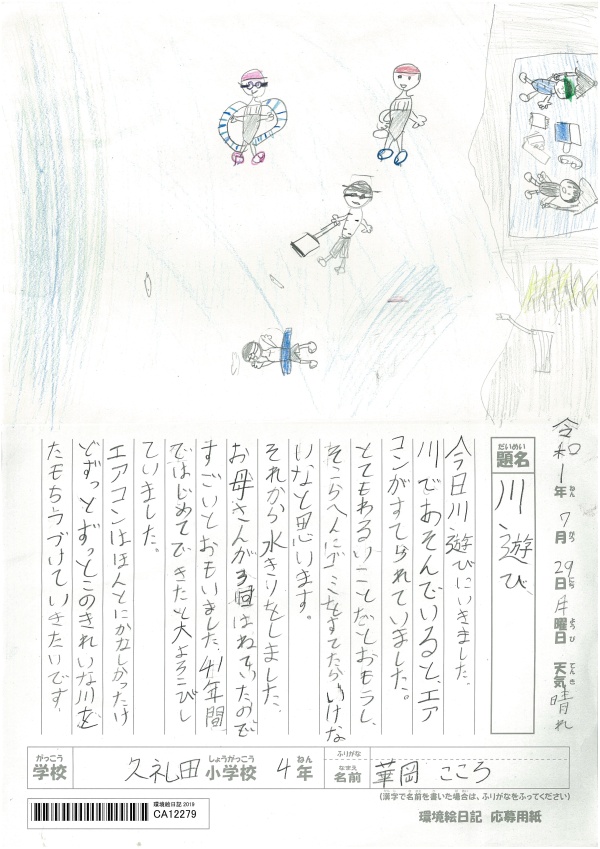 令和1年7月29日月曜日 天気晴れ
ねん がつ にち ようび てんき
だいめい
題名
川遊び
今日川遊びにいきました。
川であそんでいると、エア
コンがすてられていました。
とてもわるいことだとおもうし、
そこらへんにゴミをすてたらいけな
いなと思います。
それから水きりをしました。
お母さんが3回はねていたので
すごいとおもいました、41年間
ではじめてできたと大よろこびし
ていました。
エアコンはほんとにかなしかったけ
どずっとずっとこのきれいな川を
たもちつづけていきたいです。
がっこう しょうがっこう ねん ふりがな
学校 久礼田小学校 4年
なまえ
名前 華岡 こころ
(漢字で名前を書いた場合は、ふりがなをふってください)
環境絵日記 2019
CA12279
環境絵日記 応募用紙